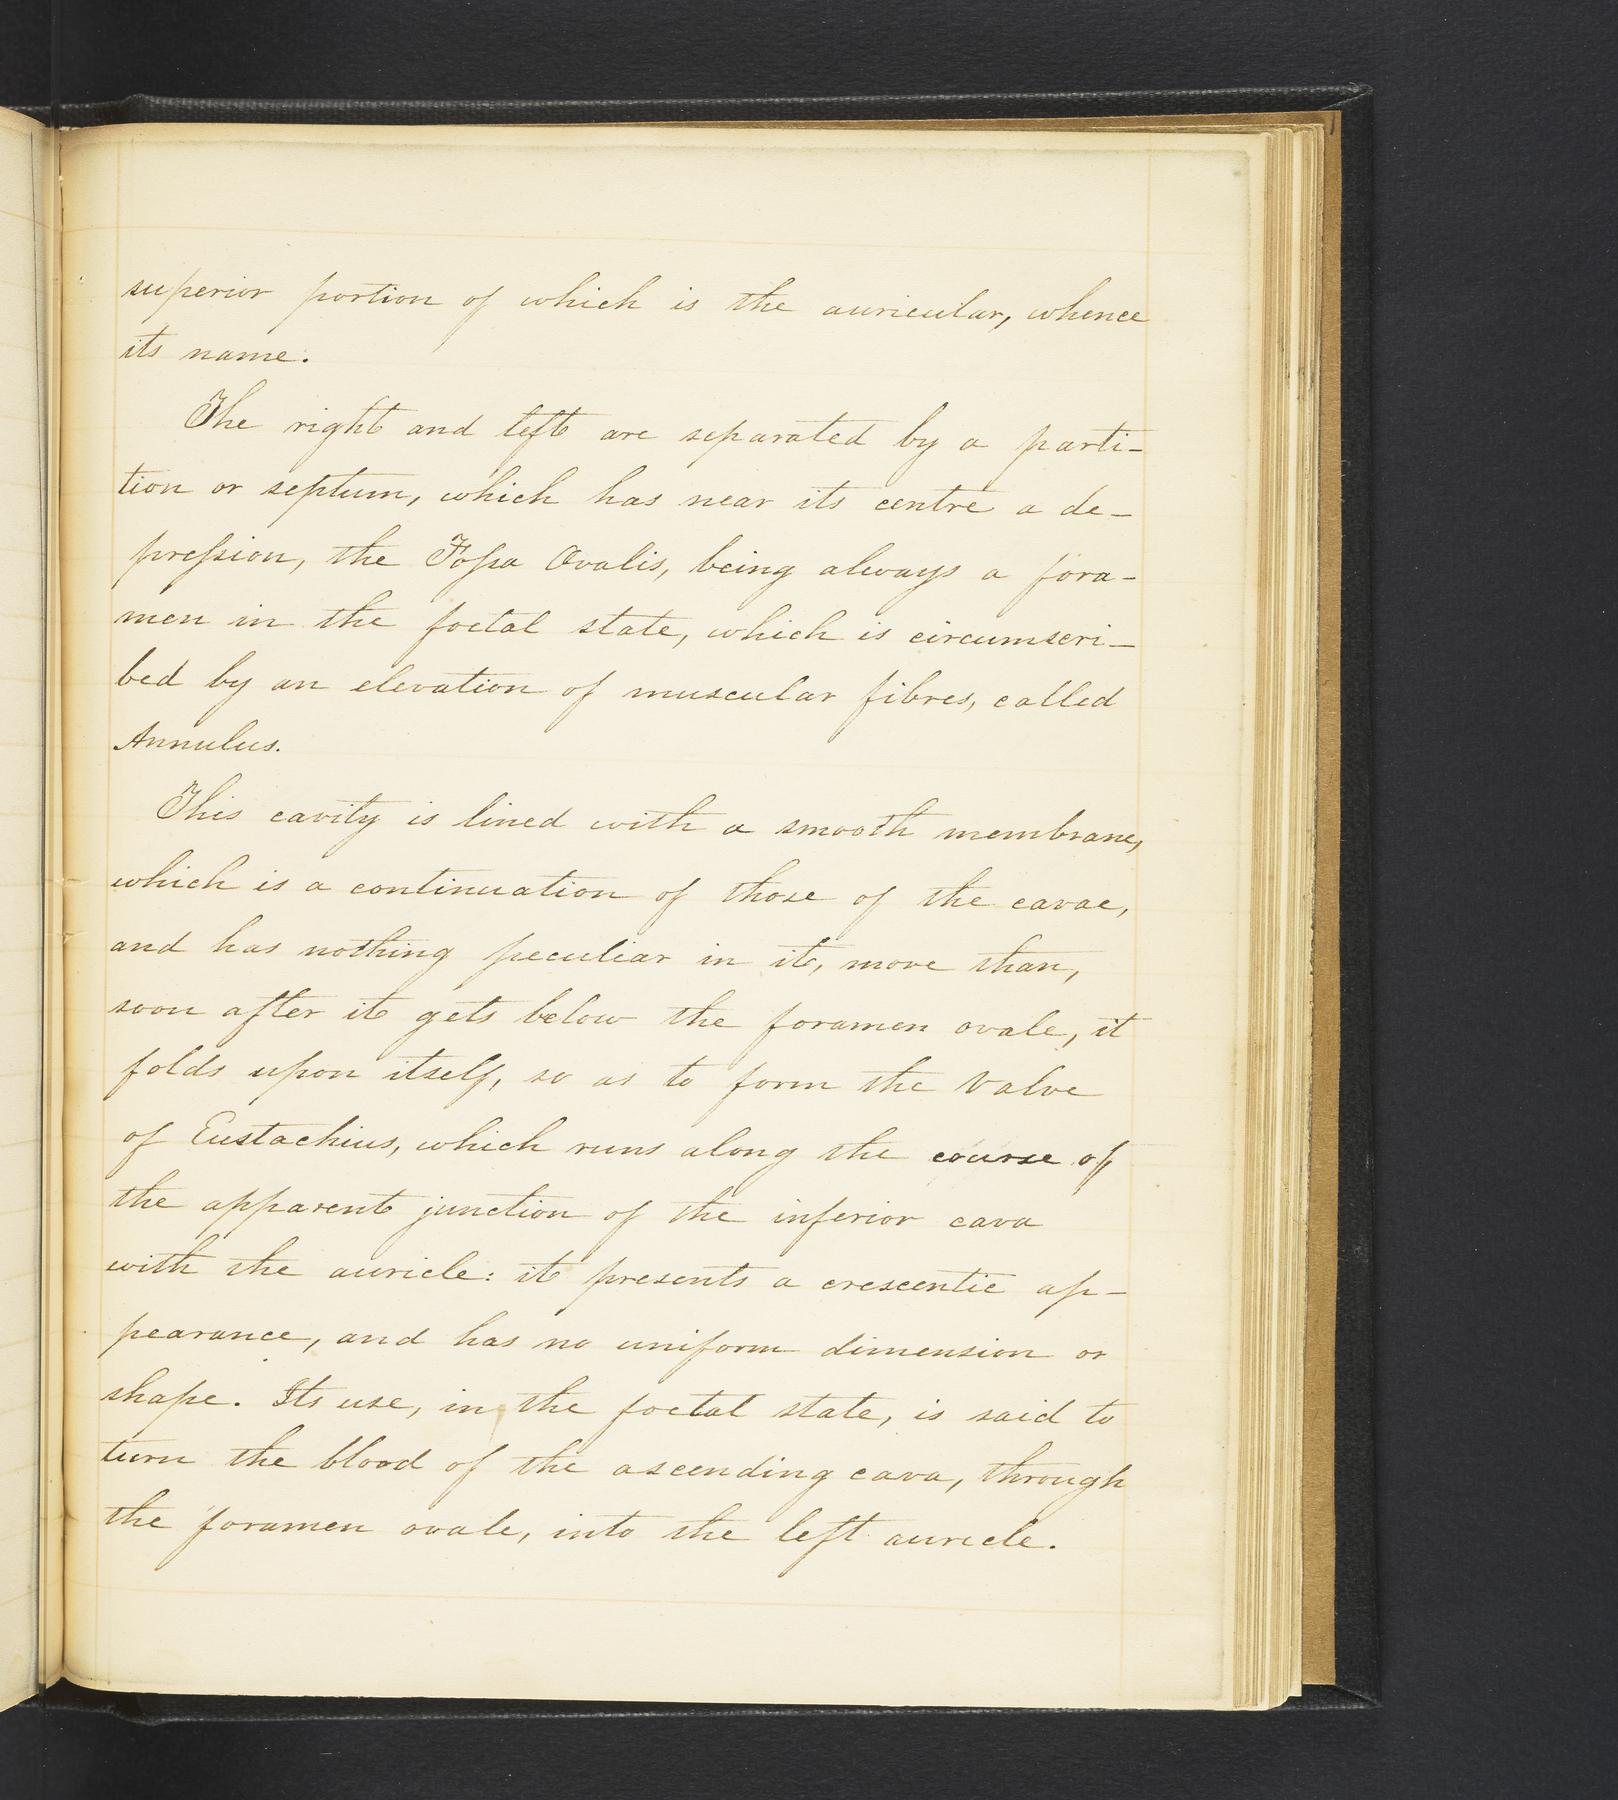 superior portion of which is the auricular, whence
its name.
The right and left are separated by a parti-
tion or septum, which has near its centre a de-
preſsion, the Foſsa Ovalis, being always a fora-
men in the foetal state, which is circumscri-
bed by an elevation of muscular fibres, called
Annulus.
This cavity is lined with a smooth membrane,
which is a continuation of those of the cavae,
and has nothing peculiar in it, more than,
soon after it gets below the foramen ovale, it
folds upon itself, so as to form the Valve
of Eustachius, which runs along the course of
the apparent junction of the inferior cava
with the auricle: it presents a crescentic ap-
pearance, and has no uniform dimension or
shape. Its use, in the foetal state, is said to
turn the blood of the ascending cava, through
the foramen ovale, into the left auricle.